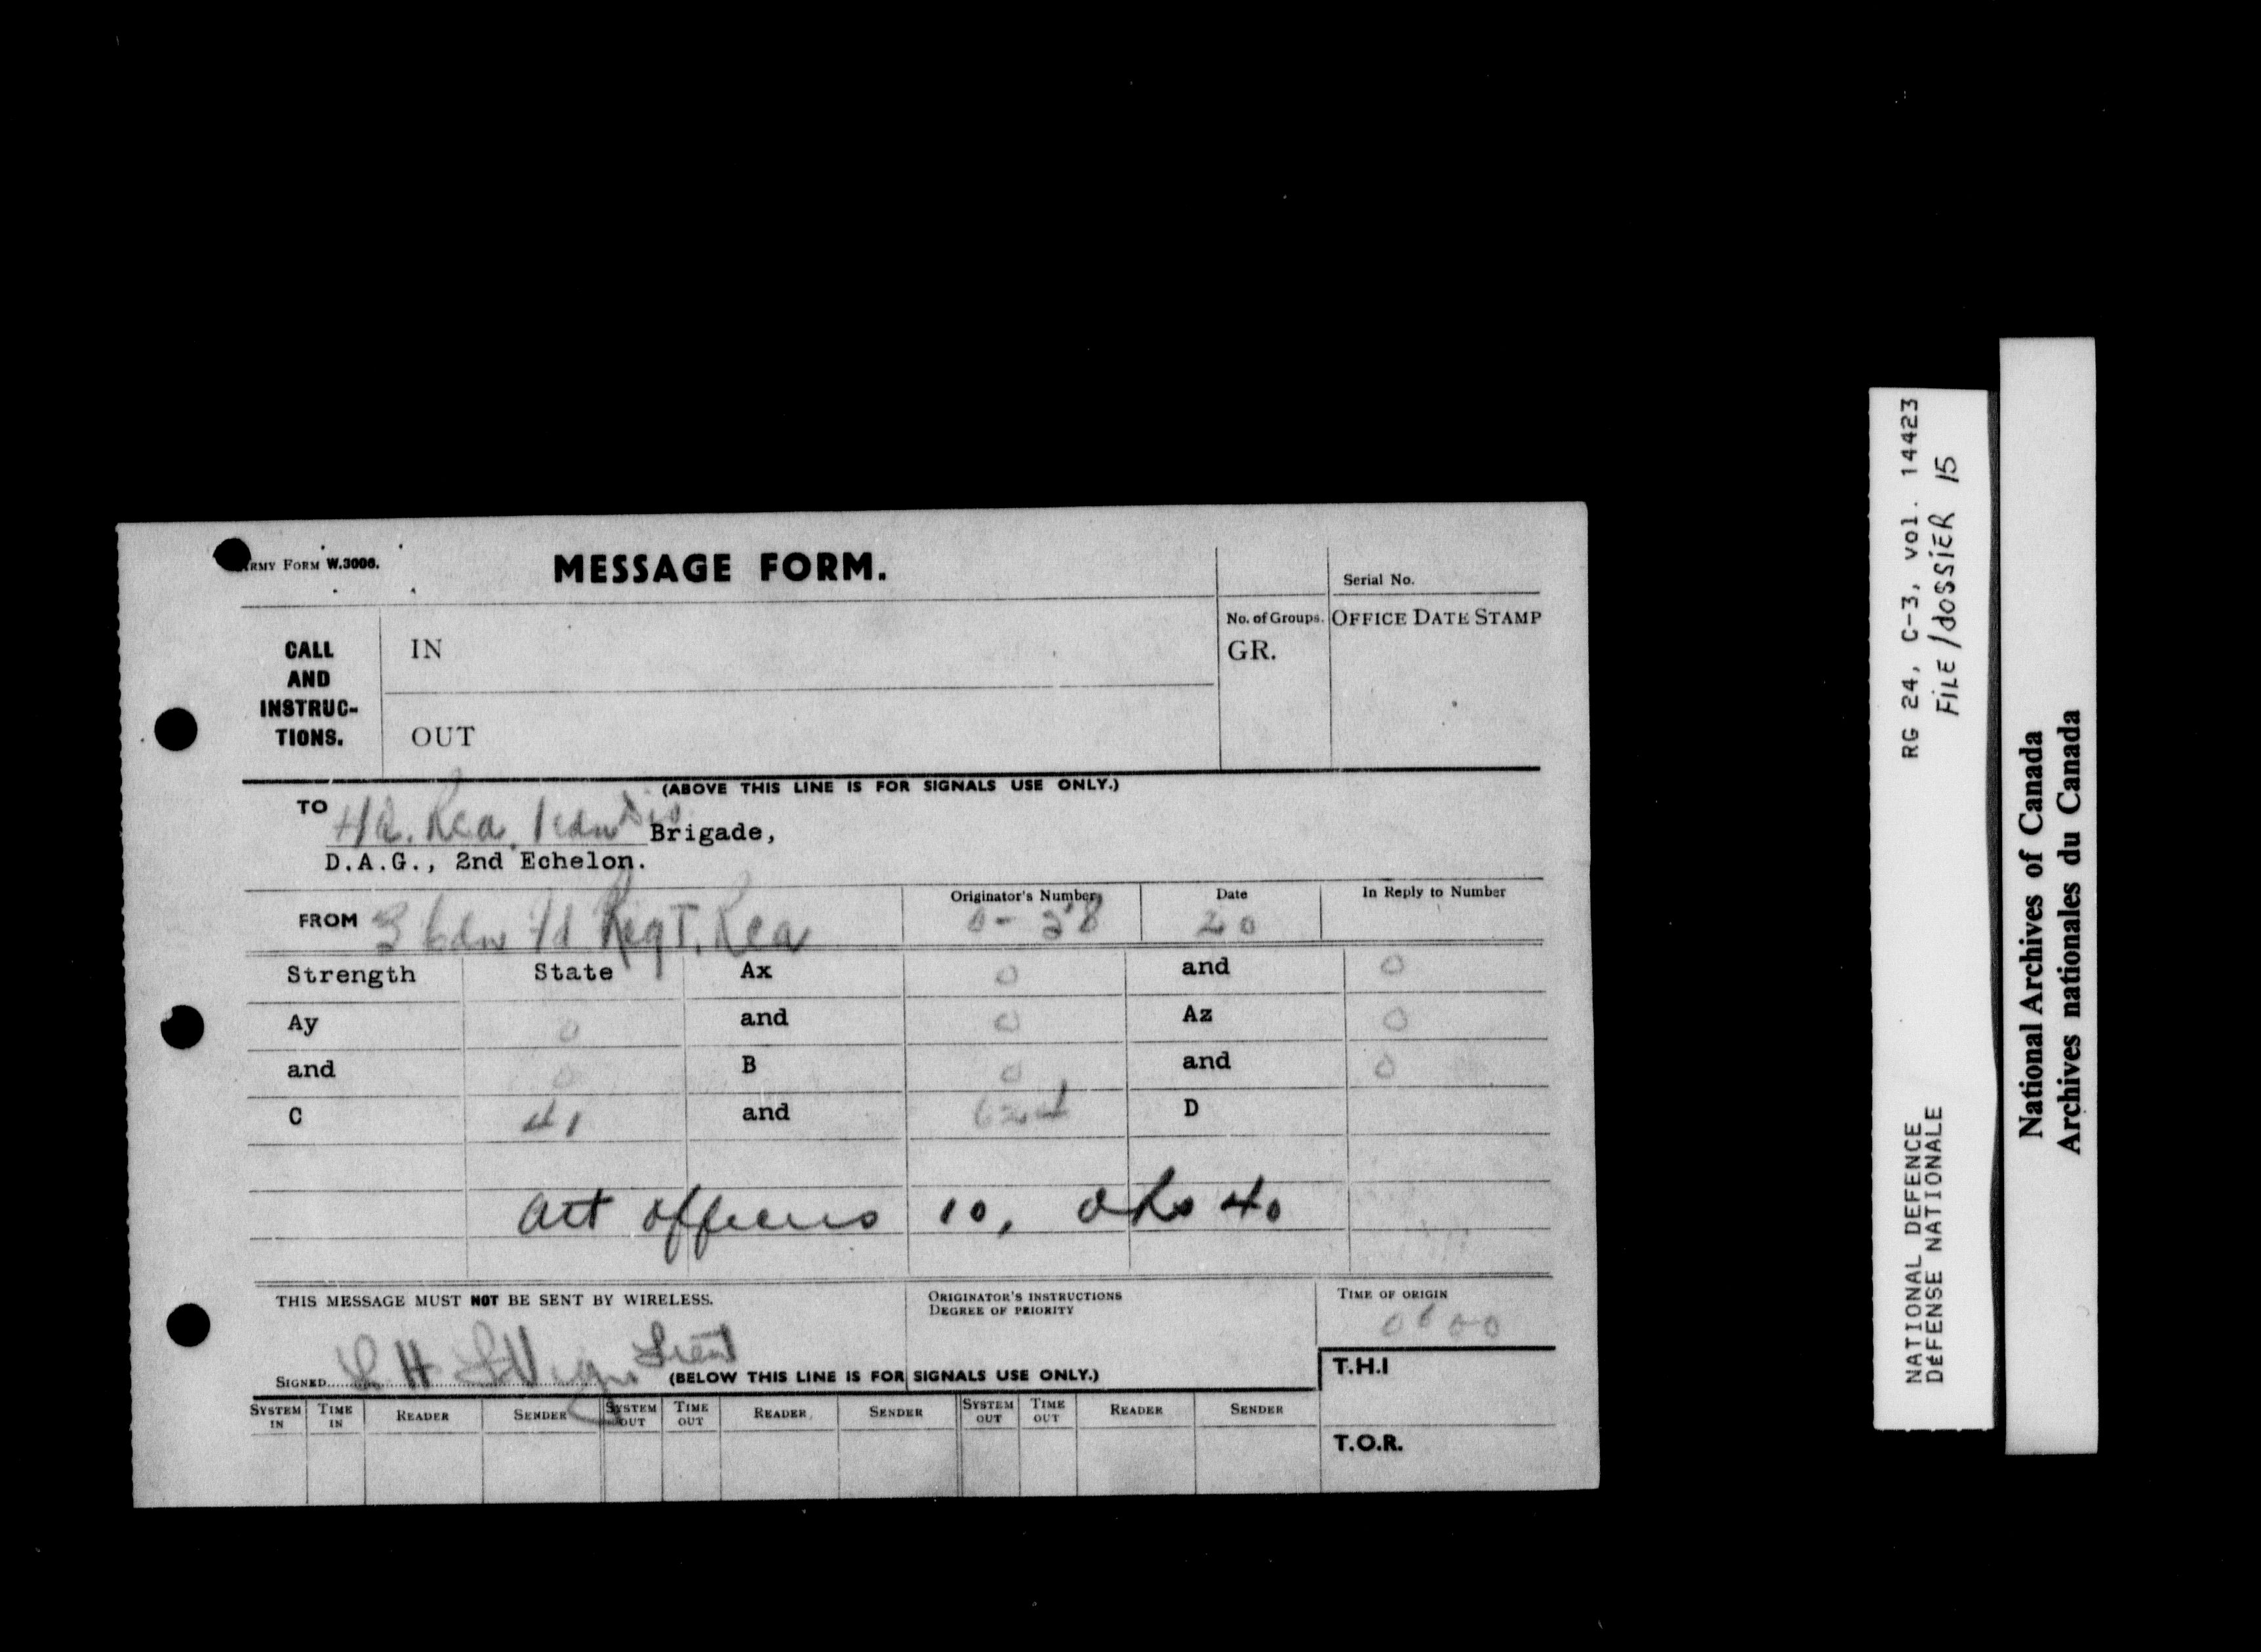 ARMY FORM W.3006.
MESSAGE FORM.
Serial No.
CALL AND INSTRUC-TIONS.
IN
OUT
No. of Groups.
GR.
OFFICE DATE STAMP
(ABOVE THIS LINE IS FOR SIGNALS USE ONLY.)
TO HQ. Rca. 1 cdn Div Brigade,
D.A.G., 2nd Echelon.
FROM 3 Cdn Fd Regt. Rca
Originator's Number 0-38
Date 20
In Reply to Number
Strength State Ax 0 and 0
Ay 0 and 0 Az 0
and 0 B 0 and 0
C 41 and 624 D
Att officers 10, ORs 40
THIS MESSAGE MUST NOT BE SENT BY WIRELESS.
ORIGINATOR'S INSTRUCTIONS
DEGREE OF PRIORITY
TIME OF ORIGIN
0600
SIGNED L H Lieut
(BELOW THIS LINE IS FOR SIGNALS USE ONLY.)
T.H.I
SYSTEM IN TIME IN READER SENDER SYSTEM OUT TIME OUT READER SENDER SYSTEM OUT TIME OUT READER SENDER
T.O.R.
RG 24, C-3, vol. 14423
FILE/dOSSiER 15
NATIONAL DEFENCE
DÉFENSE NATIONALE
National Archives of Canada
Archives nationales du Canada